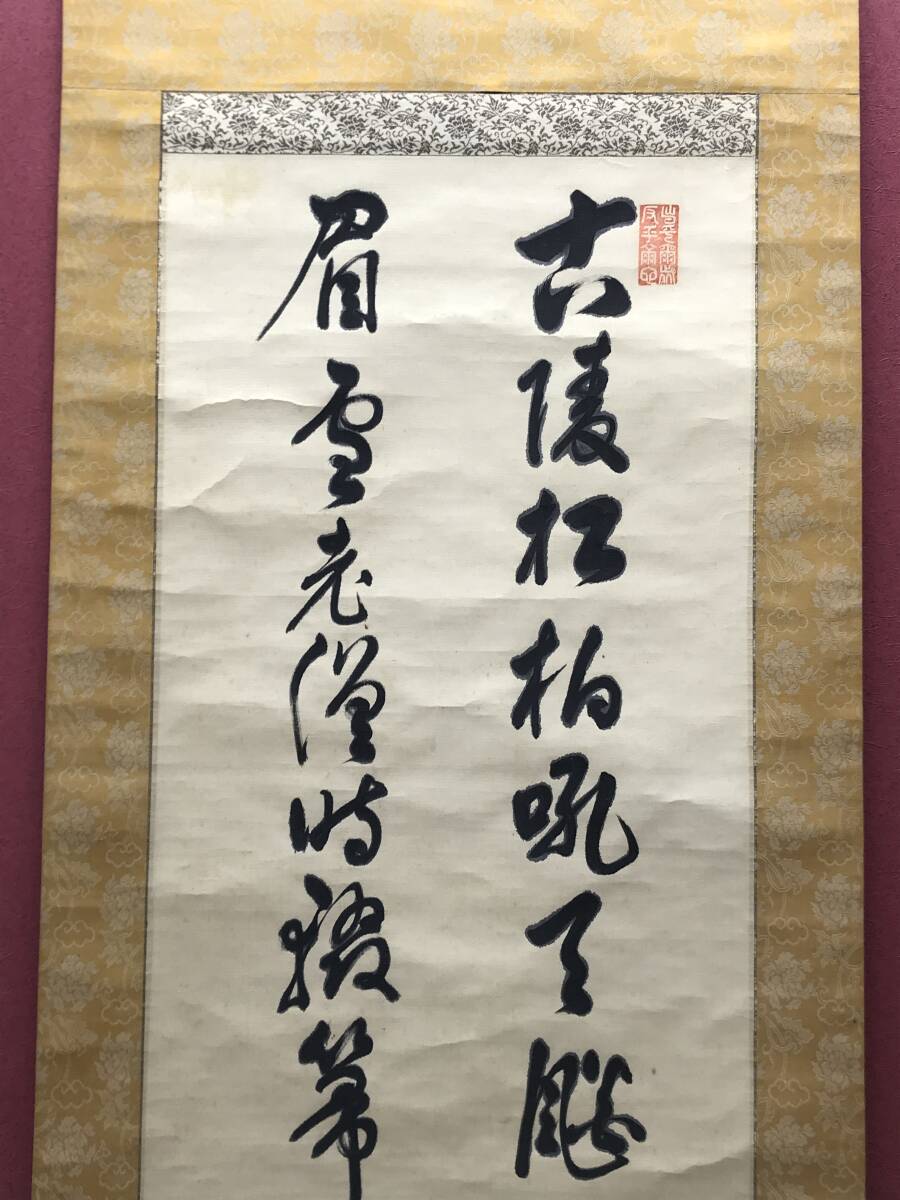 古陵松柏吼天飈
眉雪老僧時輟帚